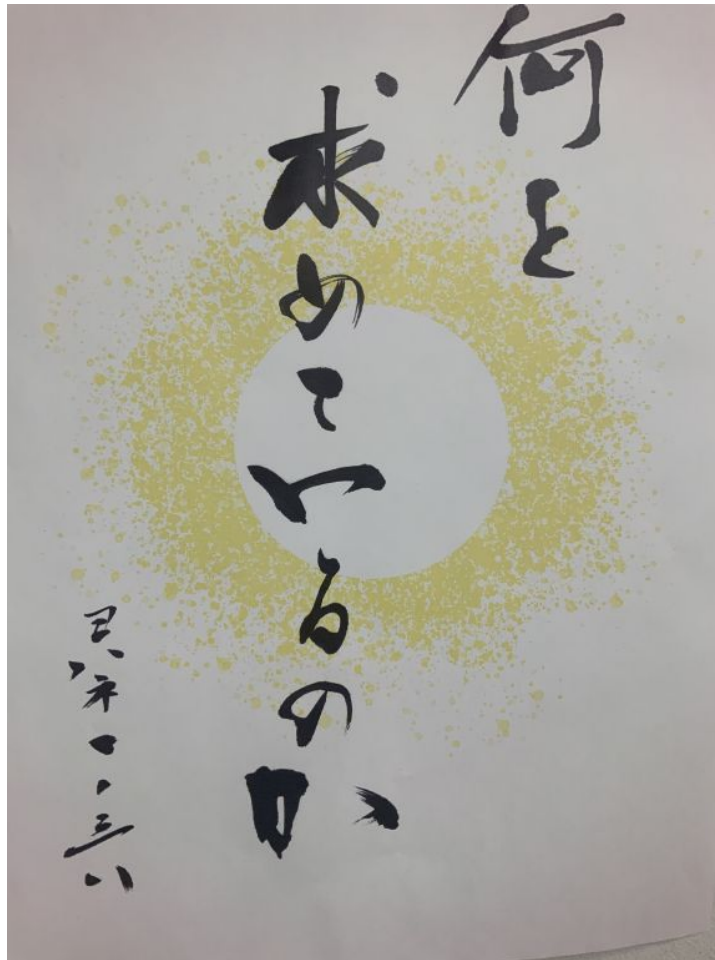 何を
求めているのか
ヨハネ一・三八